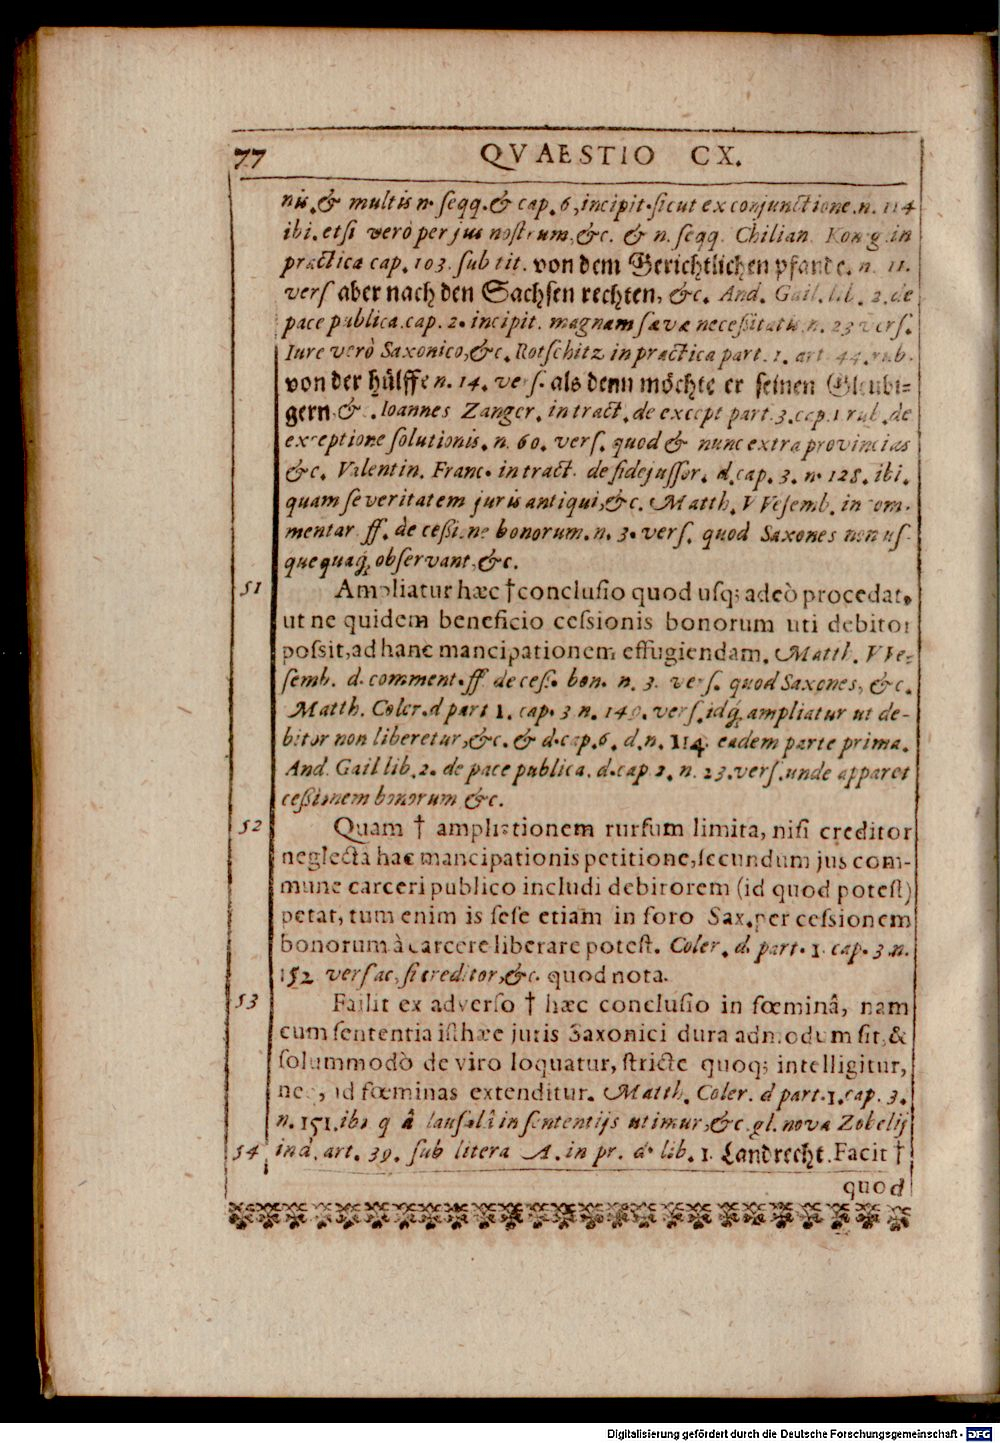 77 QVAESTIO CX.
nis, & multis n. seqq. & cap. 6, incipit. sicut ex conjunctione. n. 114
ibi. etsi verò per jus nostrum, &c. & n. seqq. Chilian. König in
practica cap. 103. sub tit. von dem Gerichtlichen pfande. n. 11.
vers aber nach den Sachsen rechten, &c. And. Gail. lib. 2. de
pace publica. cap. 2. incipit. magnam sævæ necessitatis n. 23 vers.
Iure verò Saxonico, &c. Rotschitz in practica part. 1. art 44. rub.
von der hülffe n. 14. vers. als denn möchte er seinen Gleubi-
gern, &c. Ioannes Zanger. in tract. de except part. 3. cap. 1 rub. de
exceptione solutionis. n. 60. vers. quod & nunc extra provincias
&c. Valentin. Franc. in tract. de fidejussor. d. cap. 3. n. 128. ibi.
quam severitatem juris antiqui, &c. Matth. VVesemb. in com-
mentar. ff. de cessione bonorum. n. 3. vers. quod Saxones non us-
quequaq; observant, &c.
51 Ampliatur hæc † conclusio quod usq; adeò procedat,
ut ne quidem beneficio cessionis bonorum uti debitor
possit, ad hanc mancipationem effugiendam. Matth. VVe-
semb. d. comment. ff de cess. bon. n. 3. vers. quod Saxones, &c.
Matth. Coler. d part 1. cap. 3 n. 149. vers. idq; ampliatur ut de-
bitor non liberetur, &c. & d. cap. 6. d. n. 114. eadem parte prima.
And. Gail lib. 2. de pace publica. d. cap 2. n. 23. vers. unde apparet
cessionem bonorum &c.
52 Quam † ampliationem rursum limita, nisi creditor
neglectâ hac mancipationis petitione, secundum jus com-
mune carceri publico includi debitorem (id quod potest)
petat, tum enim is sese etiam in foro Sax. per cessionem
bonorum à carcere liberare potest. Coler. d. part. 1. cap. 3. n.
152 vers ac, si creditor, &c. quod nota.
53 Fallit ex adverso † hæc conclusio in fœminâ, nam
cum sententia isthæc juris Saxonici dura admodum sit, &
solummodò de viro loquatur, stricte quoq; intelligitur,
nec, ad fœminas extenditur. Matth. Coler. d part. 1. cap. 3.
n. 151. ibi q â lausalâ in sententijs utimur, &c. gl. nova Zobelij
54 in d. art. 39. sub litera A. in pr. d. lib. 1. Landrecht. Facit †
quod
Digitalisierung gefördert durch die Deutsche Forschungsgemeinschaft - DFG